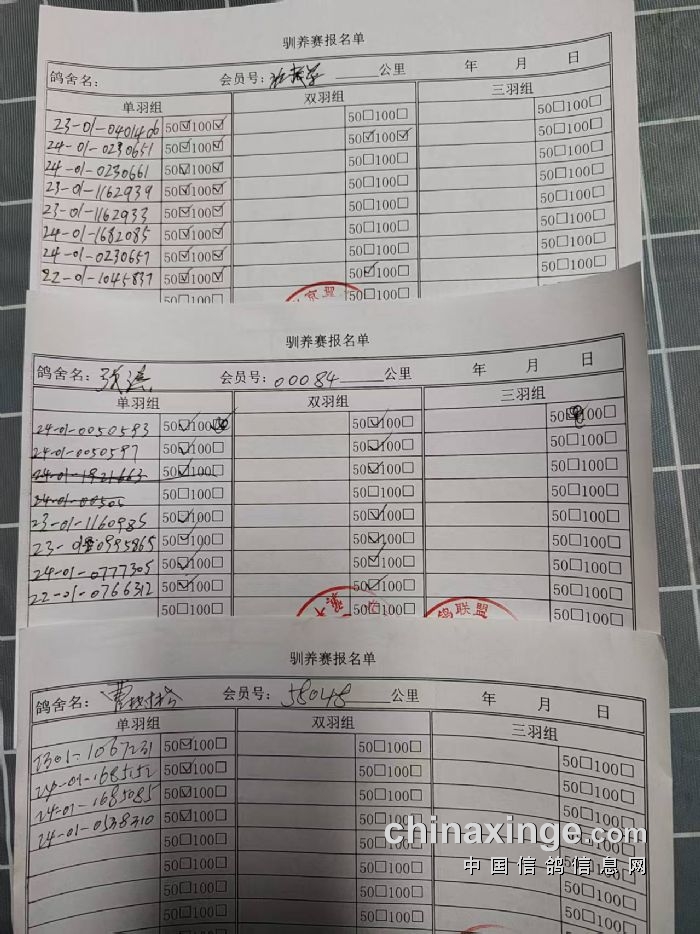 驯养赛报名单
鸽舍名： 会员号： 公里 年 月 日
单羽组 双羽组 三羽组
23-01-0401406 50☑100☑ 50☐100☐ 50☐100☐
24-01-0230651 50☑100☑ 50☑100☑ 50☐100☐
24-01-0230661 50☑100☑ 50☐100☐ 50☐100☐
23-01-1162939 50☑100☑ 50☐100☐ 50☐100☐
23-01-1162933 50☑100☑ 50☐100☐ 50☐100☐
24-01-1682085 50☑100☑ 50☐100☐ 50☐100☐
24-01-0230657 50☑100☑ 50☐100☐ 50☐100☐
22-01-1045837 50☑100☑ 50☑100☐ 50☐100☐
50☐100☐ 50☐100☐
驯养赛报名单
鸽舍名： 会员号：00084 公里 年 月 日
单羽组 双羽组 三羽组
24-01-0050593 50☑100 50☑100☐ 50 100☐
24-01-0050597 50☑100☐ 50☑100☐ 50☐100☐
24-01-1921663 50☑100☐ 50☑100☐ 50☐100☐
24-01-00505 50☐100☐ 50☐100☐ 50☐100☐
23-01-1160985 50☑100☐ 50☑100☐ 50☐100☐
23-01-0595865 50☑100☐ 50☑100☐ 50☐100☐
24-01-0777305 50☑100☐ 50☑100☐ 50☐100☐
22-01-0766312 50☑100☐ 50☑100☐ 50☐100☐
50☐100☐ 50☐100☐ 50☐100☐
鸽联盟
驯养赛报名单
鸽舍名： 会员号：58048 公里 年 月 日
单羽组 双羽组 三羽组
2301-1067231 50☑100☐ 50☐100☐ 50☐100☐
24-01-1685152 50☑100☐ 50☐100☐ 50☐100☐
24-01-1685085 50☑100☐ 50☐100☐ 50☐100☐
24-01-0538310 50☑100☐ 50☐100☐ 50☐100☐
50☐100☐ 50☐100☐ 50☐100☐
50☐100☐ 50☐100☐ 50☐100☐
50☐100☐ 50☐100☐ 50☐100☐
50☐100☐ 50☐100☐ 50☐100☐
chinaxinge.com
中国信鸽信息网